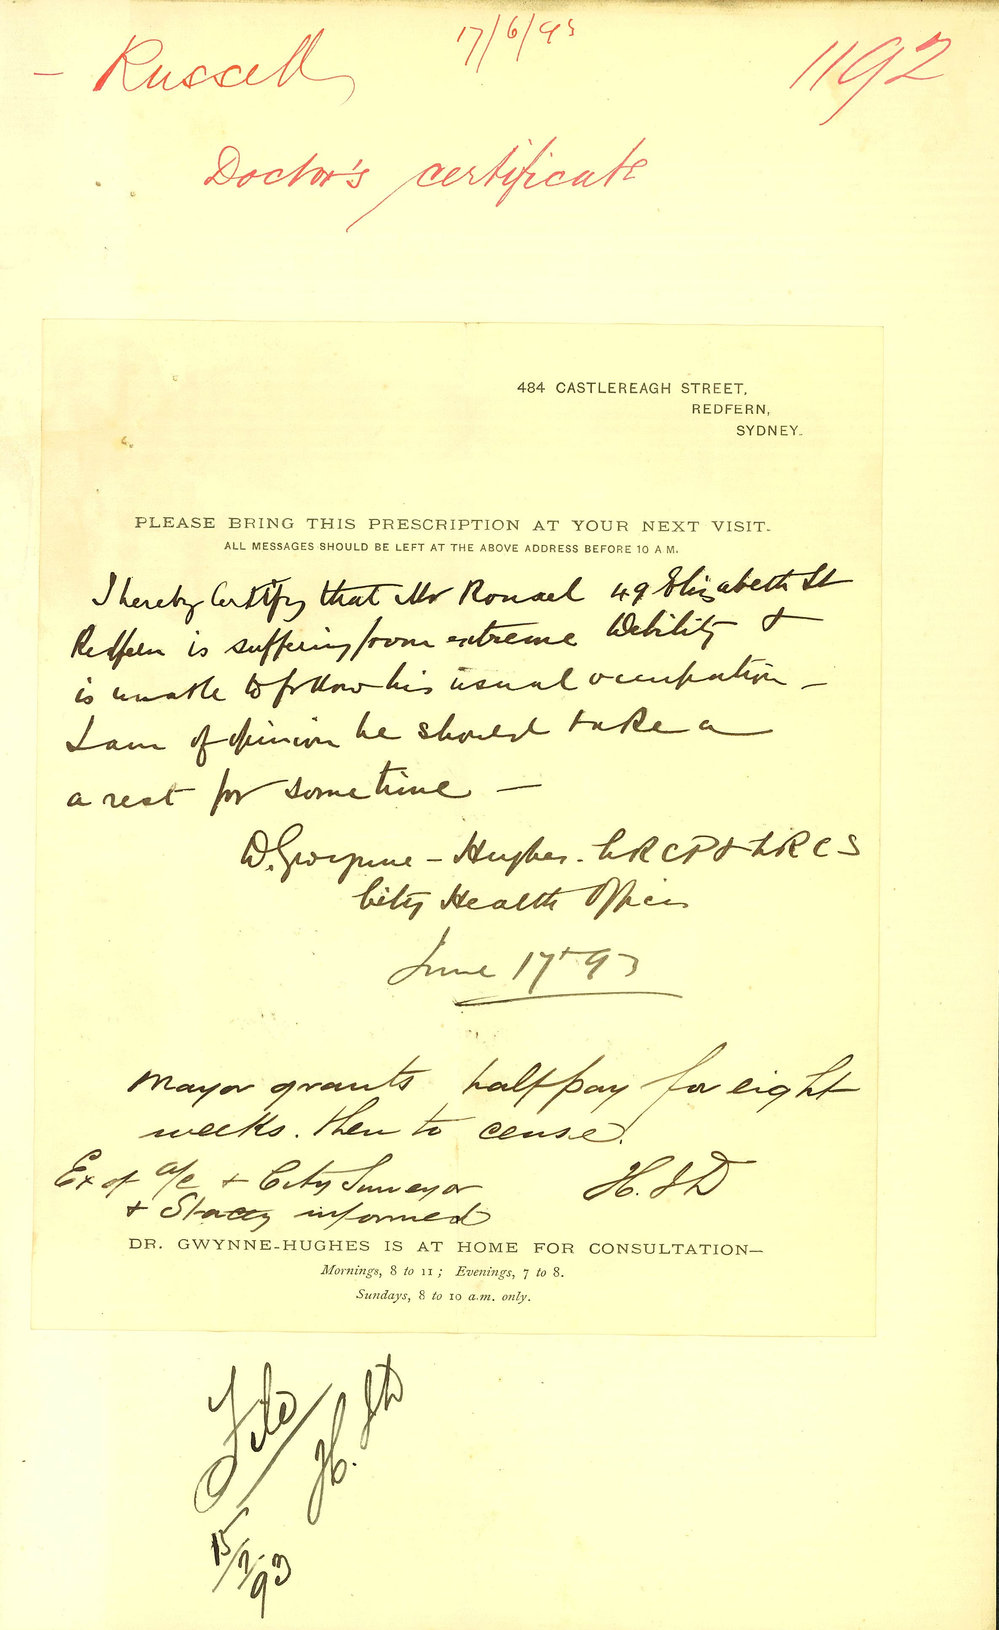 17/6/93
Russell
1192
Doctor's certificate
484 CASTLEREAGH STREET,
REDFERN,
SYDNEY.
PLEASE BRING THIS PRESCRIPTION AT YOUR NEXT VISIT.
ALL MESSAGES SHOULD BE LEFT AT THE ABOVE ADDRESS BEFORE 10 A M.
I hereby Certify that Mr Roussel 49 Elizabeth St
Redfern is suffering from extreme Debility &
is unable to follow his usual occupation –
I am of opinion he should take a
a rest for sometime –
D. Gwynne - Hughes. LRCP & LRCS
City Health Officer
June 17th 93
Mayor grants half pay for eight
weeks. then to cease.
H. J D
Ex of a/c & City Surveyor
& Stacey informed
DR. GWYNNE-HUGHES IS AT HOME FOR CONSULTATION—
Mornings, 8 to 11; Evenings, 7 to 8.
Sundays, 8 to 10 a.m. only.
File
H. J D
15/7/93